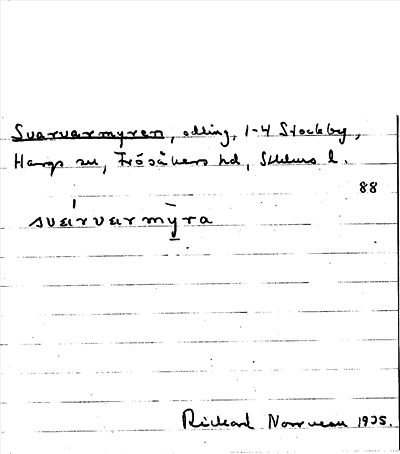 Svarvarmyren, odling, 1-4 Stockby,
Hargs sn, Frösåkers hd, Sthlms l.
88
svarvarmy̱ra
Richard Norrman 1935.